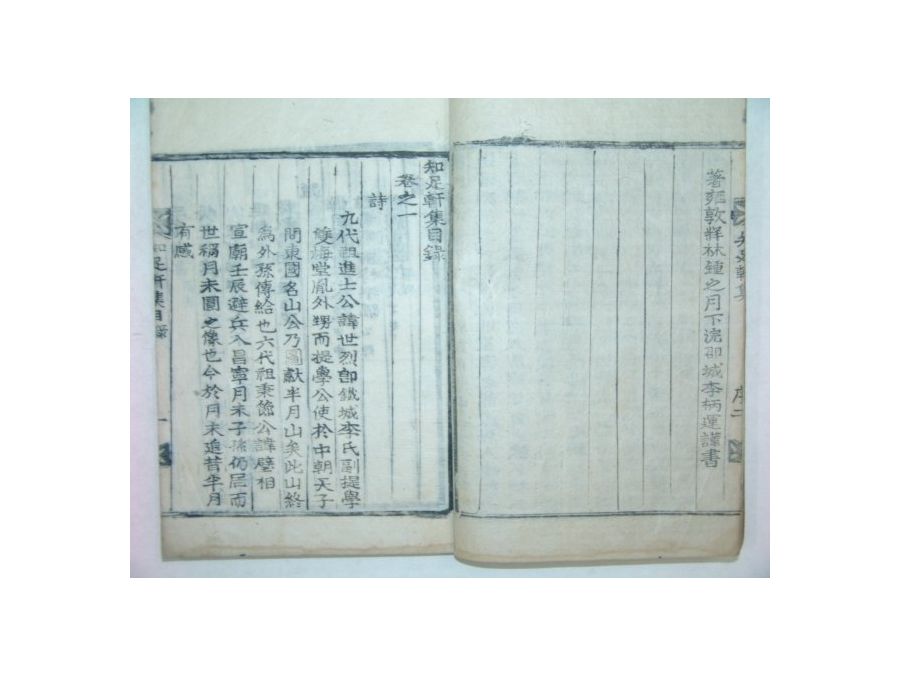 著雍敦牂林鍾之月下浣卲城李柄運謹書
知足軒集
序二
知足軒集目錄
卷之一
詩
九代祖進士公諱世烈卽鐵城李氏副提學
雙梅堂胤外甥而提學公使於中朝天子
問東國名山公乃圖獻半月山矣此山終
爲外孫傳給也六代祖秉節公諱璧相
宣廟壬辰避兵入昌寧月末子孫仍居而
世稱月未圓之像也今於月末追昔半月
有感
知足軒集目錄
一